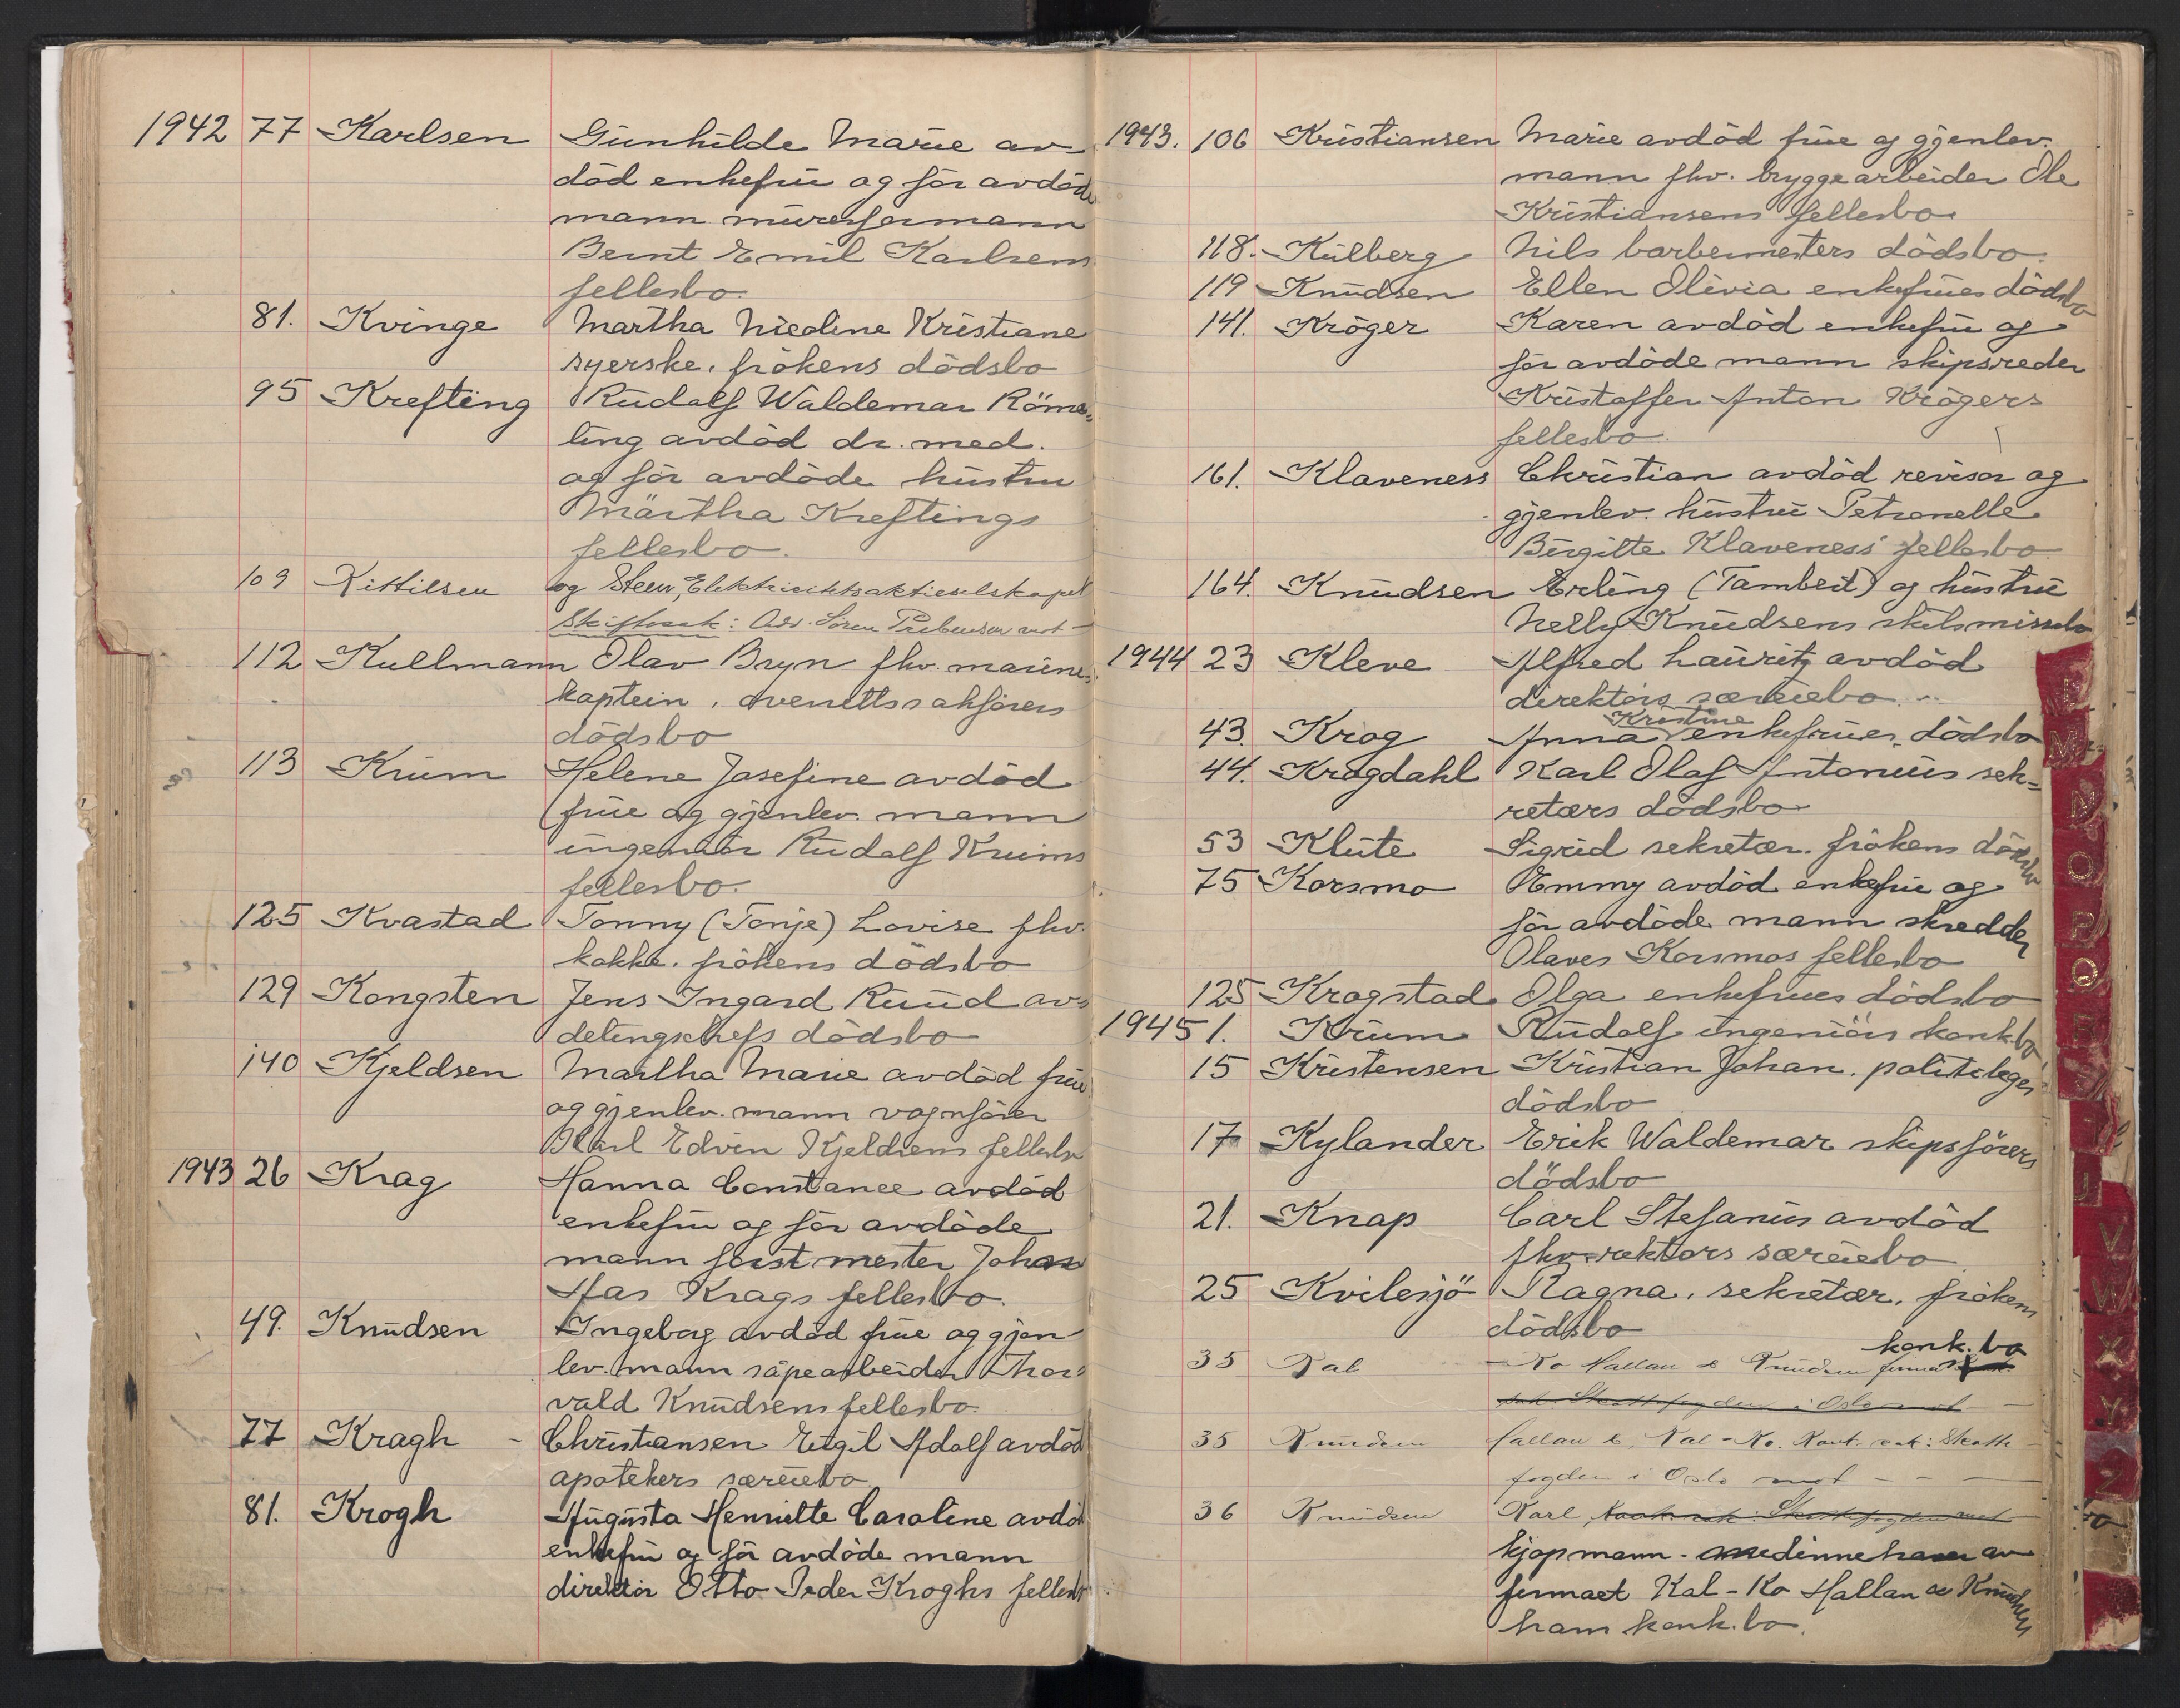 1942 77 Karlsen Gunhilde Marie av-
död enkefru og för avdöde
mann murerformann
Bernt Emil Karlsens
fellesbo.
81. Kvinge Martha Nicoline Kristiane
syerske, frökens dödsbo
95 Krefting Rudolf Waldemar Röme-
ling avdöd dr. med.
og för avdöde hustru
Märtha Kreftings
fellesbo.
109 Kittilsen og Steen, Elektricitetsaktieselskapet
Skiftesak: Adv. Sören Prebensen mot -
112 Kullmann Olav Bryn fhv. marine-
kaptein, overrettssakförers
dödsbo
113 Krum Helene Josefine avdöd
frue og gjenlev. mann
ingeniör Rudolf Krums
fellesbo.
125 Kvastad Tonny (Tonje) Lovise fhv.
kokke, frökens dödsbo
129 Kongsten Jens Ingard Ruud av-
delingschefs dödsbo
140 Kjeldsen Martha Marie avdöd frue
og gjenlev. mann vognförer
Karl Edvin Kjeldsens fellesbo
1943 26 Krag Hanna Constance avdöd
enkefru og för avdöde
mann forstmester Johan
Has Krags fellesbo.
49. Knudsen Ingeborg avdöd frue og gjen-
lev. mann såpearbeider Thor-
vald Knudsens fellesbo.
77 Kragh - Christiansen Eigil Adolf avdöd
apotekers særeiebo
81. Krogh Augusta Henriette Caroline avdöd
enkefru og för avdöde mann
direktör Otto Peder Kroghs fellesbo
1943. 106 Kristiansen Marie avdöd frue og gjenlev.
mann fhv. bryggearbeider Ole
Kristiansens fellesbo
118. Kulberg Nils barbermesters dödsbo.
119 Knudsen Ellen Olivia enkefrues dödsbo
141. Kröger Karen avdöd enkefru og
för avdöde mann skipsreder
Kristoffer Anton Krögers
fellesbo.
161. Klaveness Christian avdöd revisor og
gjenlev. hustru Petronelle
Birgitte Klaveness' fellesbo.
164. Knudsen Erling (Tambeit) og hustru
Nelly Knudsens skilsmissebo
1944 23 Kleve Alfred Lauritz avdöd
direktörs særeiebo
Kristine
43. Krog Anna enkefrues dödsbo
44. Krogdahl Karl Olaf Antonius sek-
retærs dödsbo
53 Klute Sigrid sekretær, frökens dödsbo
75 Korsmo Emmy avdöd enkefru og
för avdöde mann skredder
Olaves Korsmos fellesbo
125 Krogstad Olga enkefrues dödsbo
1945 1. Krum Rudolf ingeniörs konk.bo
15 Kristensen Kristian Johan, politileges
dödsbo
17 Kylander Erik Waldemar skipsförers
dödsbo
21. Knap Carl Stefanus avdöd
fhv. rektors særeiebo
25 Kvilesjö Ragna, sekretær, frökens
dödsbo
konk. bo
35 Kal - Ko Hallan & Knudsen firma
sak: Skattefogden i Oslo mot
35 Knudsen Hallan &, Kal-Ko. Konk. sak: Skatte
fogden i Oslo mot - - -
36 Knudsen Karl, Konk. sak: Skattefogden mot
kjøpmann - medinnehaver av
firmaet Kal-Ko Hallan & Knudsen
hans konk.bo.
L
M
N
O
P
Q
R
S
T
U
V
W
X
Y
Z
Ö